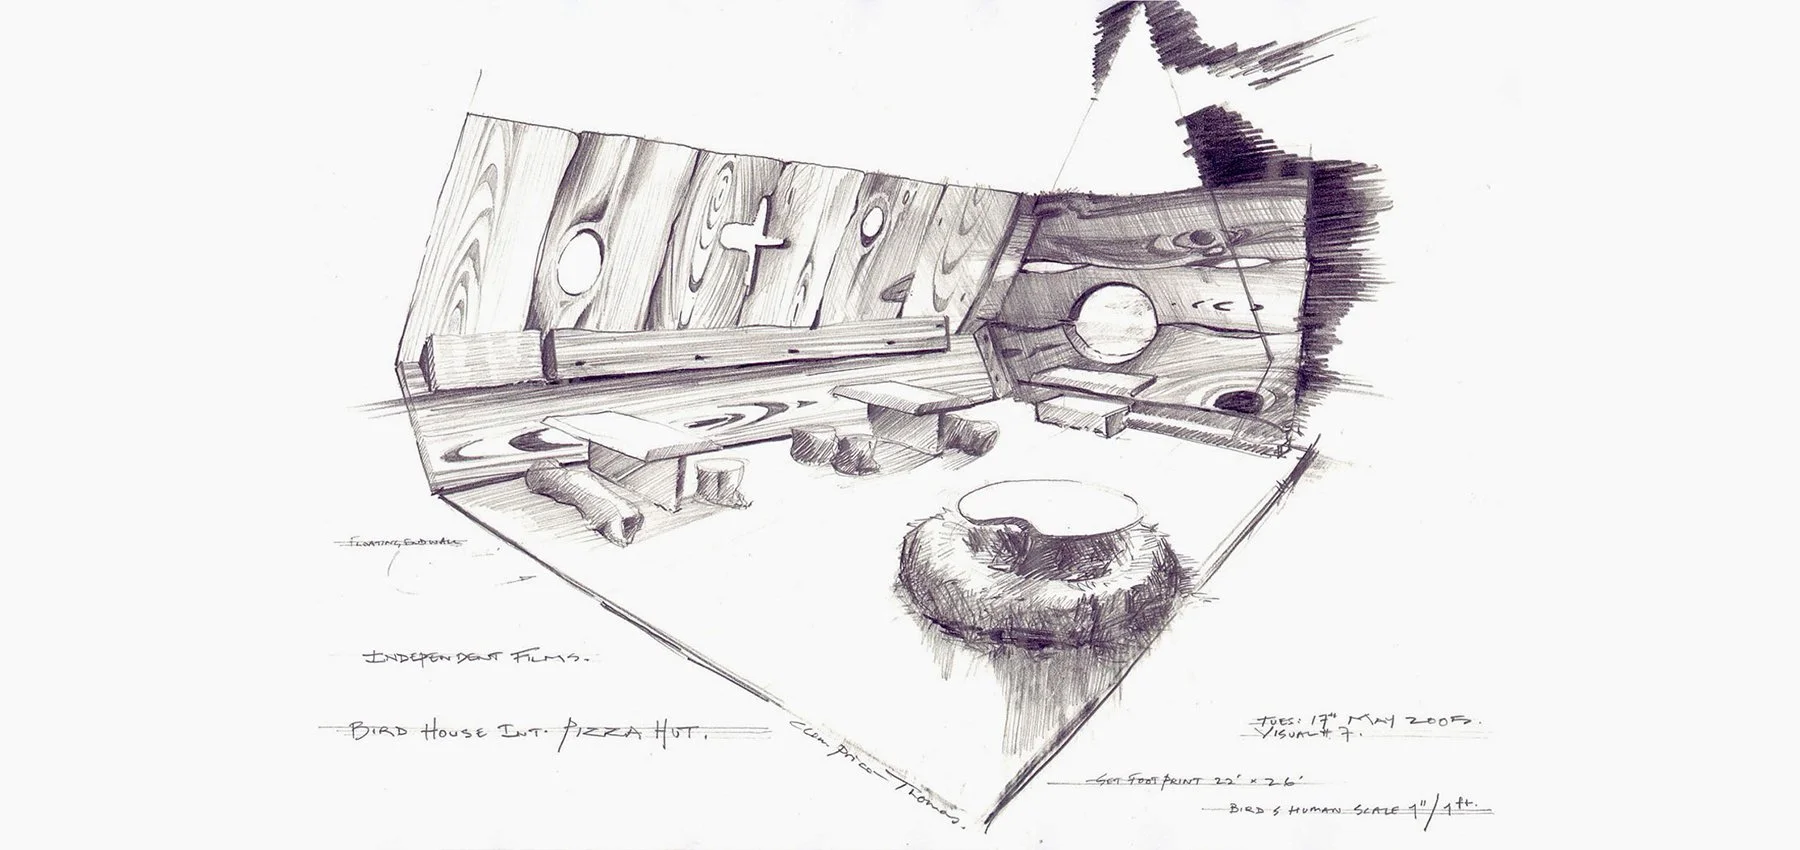 FLOATING END WALL
INDEPENDENT FILMS.
BIRD HOUSE INT. PIZZA HUT.
Clem Price-Thomas.
TUES: 17th MAY 2005.
VISUAL # 7.
SET FOOTPRINT 22' x 26'
BIRD & HUMAN SCALE 1"/1ft.